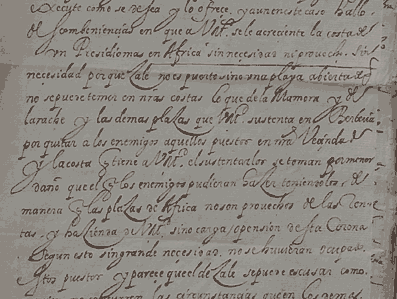 execute como se desea y lo ofrece, y aun en este caso hallo
desconbeniencias en que a V Mg.d se le acreciente la costa de
un Presidio mas en Africa sin necesidad ni provecho. Sin
necesidad porque Zale no es puerto sino una playa abierta
no se puede temer en nras costas lo que de la Mamora y de
larache y las demas plaças que V Mg.d sustenta en Berberia
por quitar a los enemigos aquellos puestos en nra
y la costa q tiene a V Mg.d el sustentarlos se toman por menor
daño que el q los enemigos pudieran hazer teniendolos, de
manera q las plaças de Africa no son provecho de las Ren-
tas, y hazienda de V Mg.d sino carga y pension de esta Corona
segun esto sin grande necesidad, no se huvieran ocupado
estos puestos y parece que el de Zale se puede escusar como
no concurren las circunstancias que en los demas